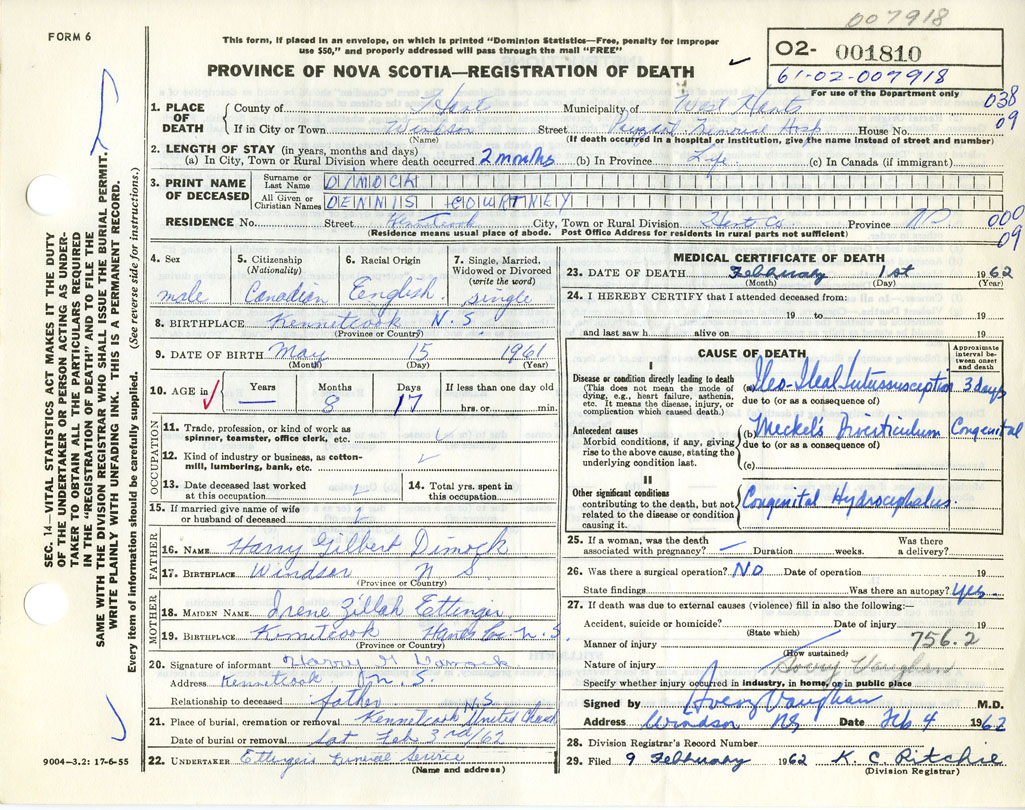 007918
FORM 6
This form, if placed in an envelope, on which is printed "Dominion Statistics—Free, penalty for improper
use $50," and properly addressed will pass through the mail "FREE"
PROVINCE OF NOVA SCOTIA—REGISTRATION OF DEATH
O2- 001810
61-02-007918
For use of the Department only
038
09
SEC. 14—VITAL STATISTICS ACT MAKES IT THE DUTY
OF THE UNDERTAKER OR PERSON ACTING AS UNDER-
TAKER TO OBTAIN ALL THE PARTICULARS REQUIRED
IN THE "REGISTRATION OF DEATH" AND TO FILE THE
SAME WITH THE DIVISION REGISTRAR WHO SHALL ISSUE THE BURIAL PERMIT.
WRITE PLAINLY WITH UNFADING INK. THIS IS A PERMANENT RECORD.
Every item of information should be carefully supplied. (See reverse side for instructions.)
1. PLACE OF DEATH
County of Hants Municipality of West Hants
If in City or Town Windsor Street Memorial Hosp House No.
(Name) (If death occurred in a hospital or institution, give the name instead of street and number)
2. LENGTH OF STAY (in years, months and days)
(a) In City, Town or Rural Division where death occurred 2 months (b) In Province Life. (c) In Canada (if immigrant)
3. PRINT NAME OF DECEASED
Surname or Last Name DIMOCK
All Given or Christian Names DENNIS COURTNEY
RESIDENCE No. Street Kennetcook City, Town or Rural Division Hants Co Province NS
(Residence means usual place of abode. Post Office Address for residents in rural parts not sufficient)
000
09
4. Sex
male
5. Citizenship
(Nationality)
Canadian
6. Racial Origin
English.
7. Single, Married,
Widowed or Divorced
(write the word)
single
8. BIRTHPLACE Kennetcook N.S.
(Province or Country)
9. DATE OF BIRTH May 15 1961
(Month) (Day) (Year)
10. AGE in
Years Months Days If less than one day old
— 8 17 hrs. or min.
OCCUPATION
11. Trade, profession, or kind of work as
spinner, teamster, office clerk, etc.
12. Kind of industry or business, as cotton-
mill, lumbering, bank, etc.
13. Date deceased last worked
at this occupation
14. Total yrs. spent in
this occupation
15. If married give name of wife
or husband of deceased
FATHER
16. NAME Harry Gilbert Dimock
17. BIRTHPLACE Windsor N S
(Province or Country)
MOTHER
18. MAIDEN NAME Irene Zillah Ettinger
19. BIRTHPLACE Kennetcook Hants Co. N.S.
(Province or Country)
20. Signature of informant Harry G Dimock
Address Kennetcook N.S.
Relationship to deceased father
21. Place of burial, cremation or removal Kennetcook N.S. United Church
Date of burial or removal Sat Feb 3rd/62
22. UNDERTAKER Ettingers Funeral Service
(Name and address)
9004-3.2: 17-6-55
MEDICAL CERTIFICATE OF DEATH
23. DATE OF DEATH February 1st 1962
(Month) (Day) (Year)
24. I HEREBY CERTIFY that I attended deceased from:
19 to 19
and last saw h alive on 19
CAUSE OF DEATH
Approximate
interval be-
tween onset
and death
I
Disease or condition directly leading to death
(This does not mean the mode of
dying, e.g., heart failure, asthenia,
etc. It means the disease, injury, or
complication which caused death.)
(a) Ileo-Ileal Intussusception 3 days
due to (or as a consequence of)
Antecedent causes
Morbid conditions, if any, giving
rise to the above cause, stating the
underlying condition last.
(b) Meckel's Diverticulum Congenital
due to (or as a consequence of)
(c)
II
Other significant conditions
contributing to the death, but not
related to the disease or condition
causing it.
Congenital Hydrocephalus.
25. If a woman, was the death
associated with pregnancy? — Duration weeks. Was there
a delivery?
26. Was there a surgical operation? NO Date of operation 19
State findings Was there an autopsy? Yes.
27. If death was due to external causes (violence) fill in also the following:—
Accident, suicide or homicide? Date of injury 19
(State which)
Manner of injury 756.2
(How sustained)
Nature of injury Avery Vaughan
Specify whether injury occurred in industry, in home, or in public place
Signed by Avery Vaughan M.D.
Address Windsor NS Date Feb 4 1962
28. Division Registrar's Record Number
29. Filed 9 February 1962 K. C. Ritchie
(Division Registrar)